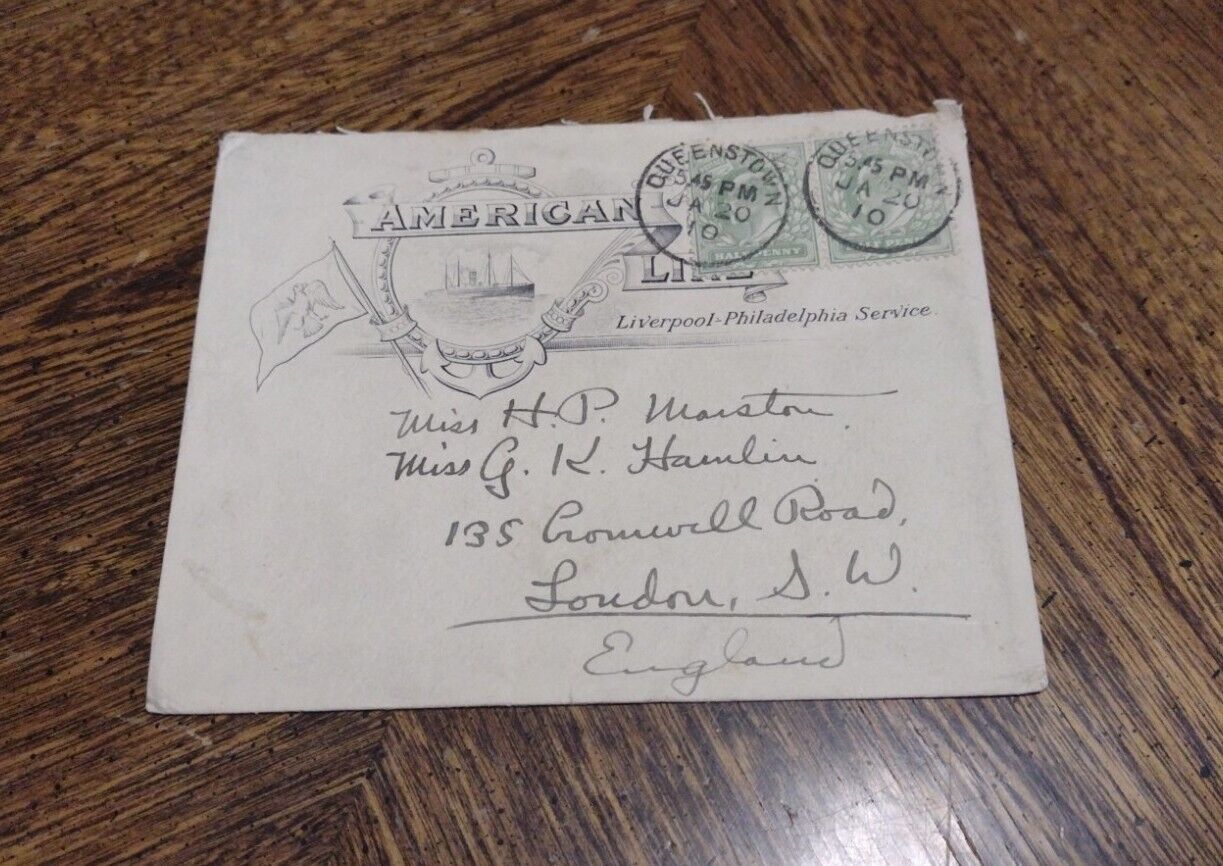 AMERICAN
LINE
Liverpool-Philadelphia Service.
QUEENSTOWN
5.45 PM
JA 20
10
QUEENSTOWN
5.45 PM
JA 20
10
HALFPENNY
Miss H. P. Marston
Miss G. K. Hamlin
135 Cromwell Road,
London, S. W.
England